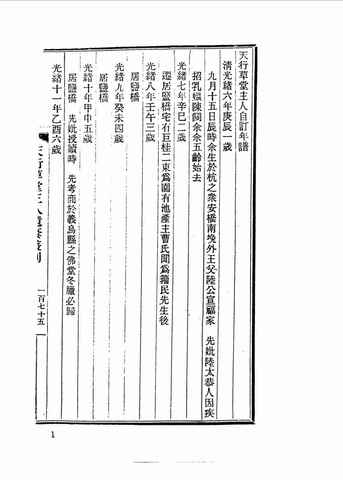 天行草堂主人自訂年譜
清光緒六年庚辰一歲
九月十五日辰時余生於杭之衆安橋南堍外王父陸公宣福家 先妣陸太恭人因疾
招乳媼陳飼余余五齡始去
光緒七年辛巳二歲
遷居鹽橋宅右巨桂二東爲園有地產主曹氏聞爲籀民先生後
光緒八年壬午三歲
居鹽橋
光緒九年癸未四歲
居鹽橋
光緒十年甲申五歲
居鹽橋 先妣授讀時 先考商於義烏縣之佛堂冬臘必歸
光緒十一年乙酉六歲
天行草堂主人遺藁叢刊
一百七十五
1